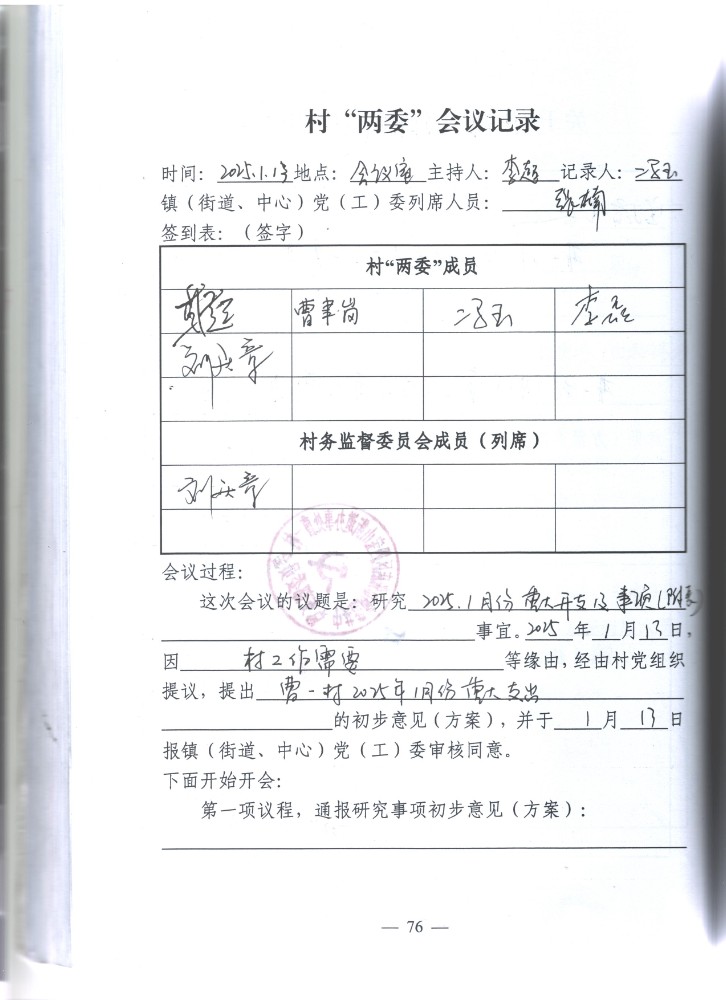 村“两委”会议记录
时间：2025.1.13地点：会议室 主持人：李超 记录人：冯玉
镇（街道、中心）党（工）委列席人员：张楠
签到表：（签字）
村“两委”成员
曹聿岗 冯玉 李磊
刘庆章
村务监督委员会成员（列席）
刘庆章
会议过程：
这次会议的议题是：研究 2025.1月份重大开支及事项（附表）
事宜。2025年1月13日，
因 村工作需要 等缘由，经由村党组织
提议，提出 曹一村2025年1月份重大支出
的初步意见（方案），并于 1 月 13 日
报镇（街道、中心）党（工）委审核同意。
下面开始开会：
第一项议程，通报研究事项初步意见（方案）：
— 76 —